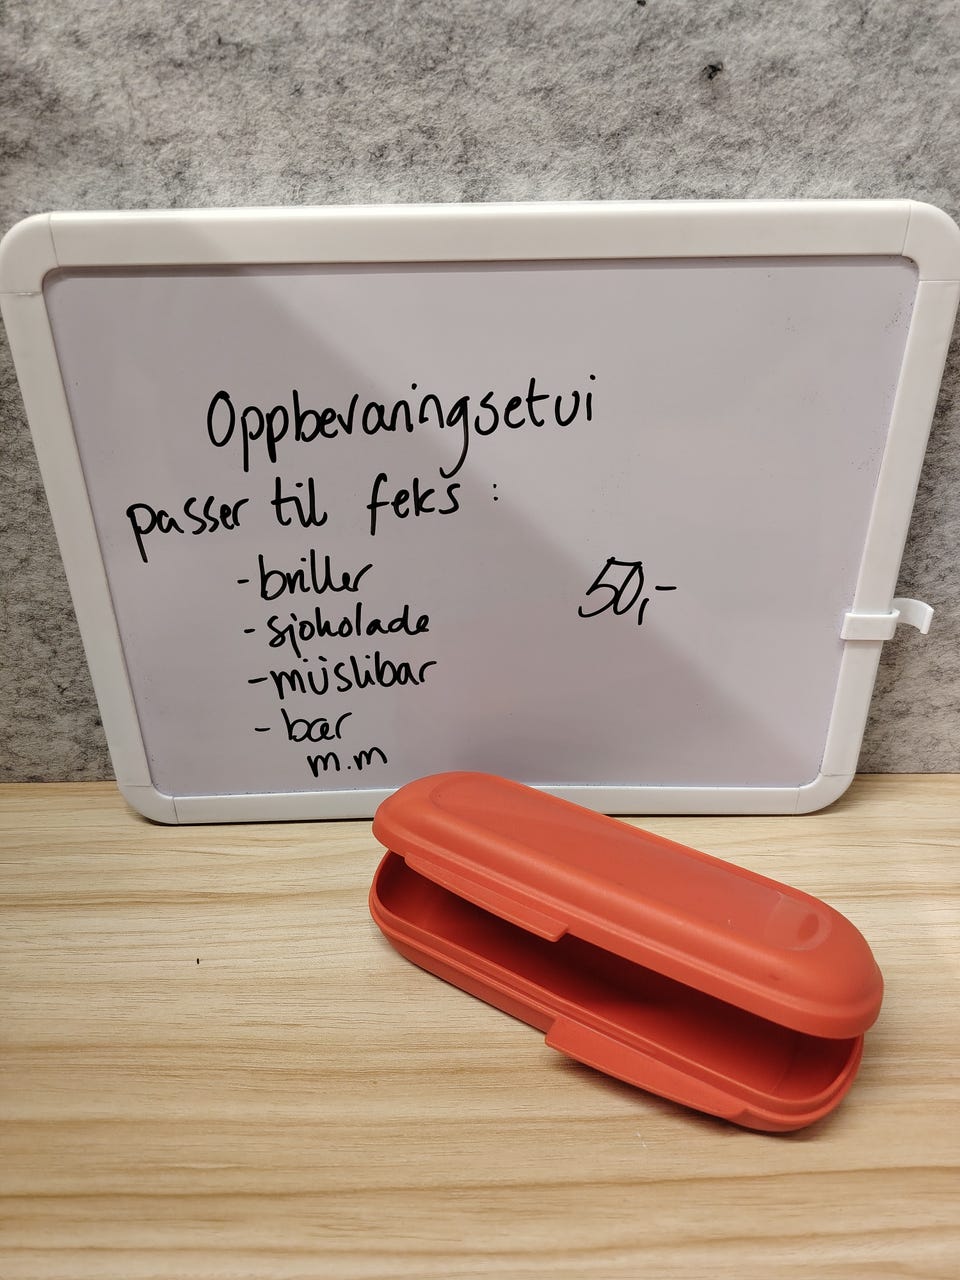 Oppbevaringsetui
passer til feks :
- briller
- sjokolade
- müslibar
- bær
m.m
50,-